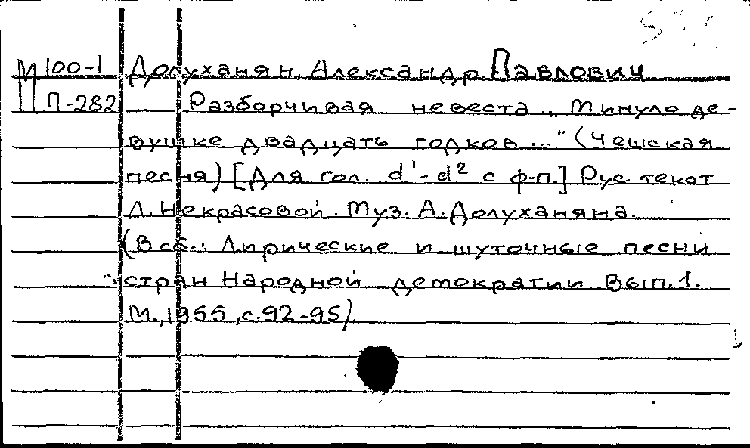 М 100-1 Долуханян, Александр Павлович
П П-282 Разборчивая невеста „Минуло де-
вушке двадцать годков..." (Чешская
песня) [Для гол. d¹-d² с ф-п.] Рус. текст
Л. Некрасовой. Муз. А. Долуханяна.
(В сб.: Лирические и шуточные песни
стран Народной демократии Вып. 1.
М., 1955, с. 92-95)